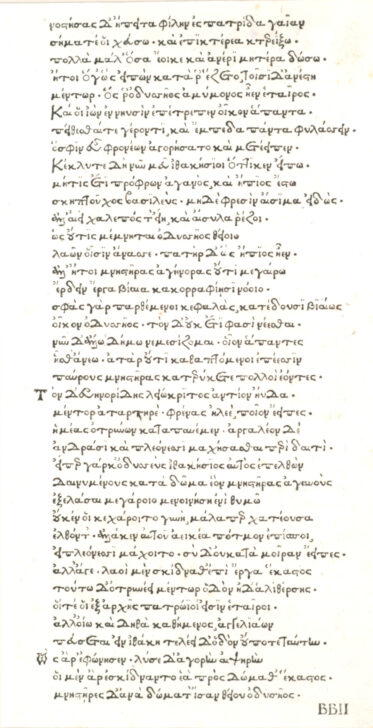 νοστήσας δὴ ἔπειτα φίλην ἐς πατρίδα γαῖαν
σῆμά τέ οἱ χεύσω· καὶ ἐπὶ κτέρεα κτερείξω·
πολλὰ μάλ' ὅσσα ἔοικε· καὶ ἀνέρι μητέρα δώσω·
ἤτοι ὅγ' ὣς εἰπὼν κατ' ἄρ' ἕζετο, τοῖσι δ' ἀνέστη
μέντωρ· ὅς ῥ' ὀδυσῆος ἀμύμονος ἦεν ἑταῖρος·
Καί οἱ ἰὼν ἐν νηυσὶν ἐπέτρεπεν οἶκον ἅπαντα·
πείθεσθαί τε γέροντι, καὶ ἔμπεδα πάντα φυλάσσειν·
ὅ σφιν ἐϋφρονέων ἀγορήσατο καὶ μετέειπεν·
Κέκλυτε δὴ νῦν μευ ἰθακήσιοι ὅττι κεν εἴπω·
μήτις ἔτι πρόφρων ἀγανὸς, καὶ ἤπιος ἔστω
σκηπτοῦχος βασιλεύς· μηδὲ φρεσὶν αἴσιμα εἰδώς·
ἀλλ' αἰεὶ χαλεπός τ' εἴη, καὶ αἴσυλα ῥέζοι·
ὡς οὔτις μέμνηται ὀδυσσῆος θείοιο
λαῶν οἷσιν ἄνασσε· πατὴρ δ' ὣς ἤπιος ἦεν·
ἀλλ' ἤτοι μνηστῆρας ἀγήνορας οὔτι μεγαίρω
ἔρδειν ἔργα βίαια κακορραφίῃσι νόοιο·
σφὰς γὰρ παρθέμενοι κεφαλὰς, κατέδουσι βιαίως
οἶκον ὀδυσσῆος· τὸν δ' οὐκ ἔτι φασὶ νέεσθαι·
νῦν δ' ἄλλῳ δήμῳ νεμεσίζομαι· οἷον ἅπαντες
ἧσθ' ἄνεῳ· ἀτὰρ οὔτι καθαπτόμενοι ἐπέεσσιν
παύρους μνηστῆρας κατερύκετε πολλοὶ ἐόντες·
Τὸν δ' εὐηνορίδης λειώκριτος ἀντίον ηὔδα·
μέντορ ἀταρτηρέ· φρένας ἠλεέ, ποῖον ἔειπες·
ἡμέας ὀτρύνων καταπαυέμεν· ἀργαλέον δὲ
ἀνδράσι καὶ πλεόνεσσι μαχήσασθαι περὶ δαιτί·
εἴπερ γάρ κ' ὀδυσσεὺς ἰθακήσιος αὐτὸς ἐπελθὼν
δαινυμένους κατὰ δῶμα ἑὸν μνηστῆρας ἀγαυοὺς
ἐξελάσαι μεγάροιο μενοινήσει' ἐνὶ θυμῷ
οὔ κέν οἱ κεχάροιτο γυνὴ, μάλα περ χατέουσα
ἐλθόντ'· ἀλλά κεν αὐτοῦ ἀεικέα πότμον ἐπίσποι,
εἰ πλεόνεσσι μάχοιτο· σὺ δ' οὐ κατὰ μοῖραν ἔειπες·
ἀλλ' ἄγε· λαοὶ μὲν σκίδνασθ' ἐπὶ ἔργα ἕκαστος
τούτῳ δ' ὀτρυνέει μέντωρ ὁδὸν ἠδ' ἁλιθέρσης·
οἵτέ οἱ ἐξ ἀρχῆς πατρώϊοί εἰσιν ἑταῖροι·
ἀλλ' οἴω καὶ δηθὰ καθήμενος, ἀγγελιάων
πεύσεται εἰν ἰθάκῃ· τελέει δ' ὁδὸν οὔποτε ταύτην·
Ὣς ἄρ' ἐφώνησεν· λῦσεν δ' ἀγορὴν αἰψηρήν
οἱ μὲν ἄρ' ἐσκίδναντο ἑὰ πρὸς δώμαθ' ἕκαστος·
μνηστῆρες δ' ἀνὰ δώματ' ἴσαν θείου ὀδυσῆος·
ΒΒΙΙ